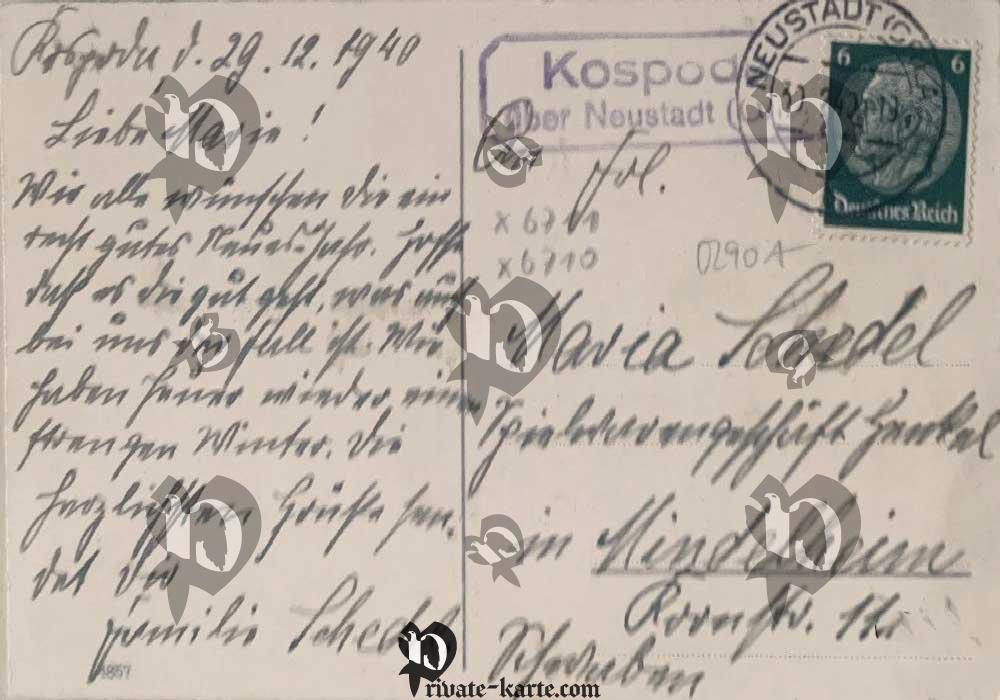 Kospoda d. 29.12.1940
Liebe Marie!
Wir alle wünschen Dir ein
recht gutes Neues-Jahr. Hoffe
daß es Dir gut geht, was auch
bei uns der Fall ist. Wir
haben heuer wieder einen
strengen Winter. Die
herzlichsten Grüße sen-
det Dir
Familie Schedel
4857
Kospod
über Neustadt (
NEUSTADT (
6 6
Deutsches Reich
An
Frl.
x 6711
x 6710
0290A
Maria Schedel
Spielwarengeschäft Henkel
in Mindelheim
Kornstr.
Schwaben
Private-karte.com